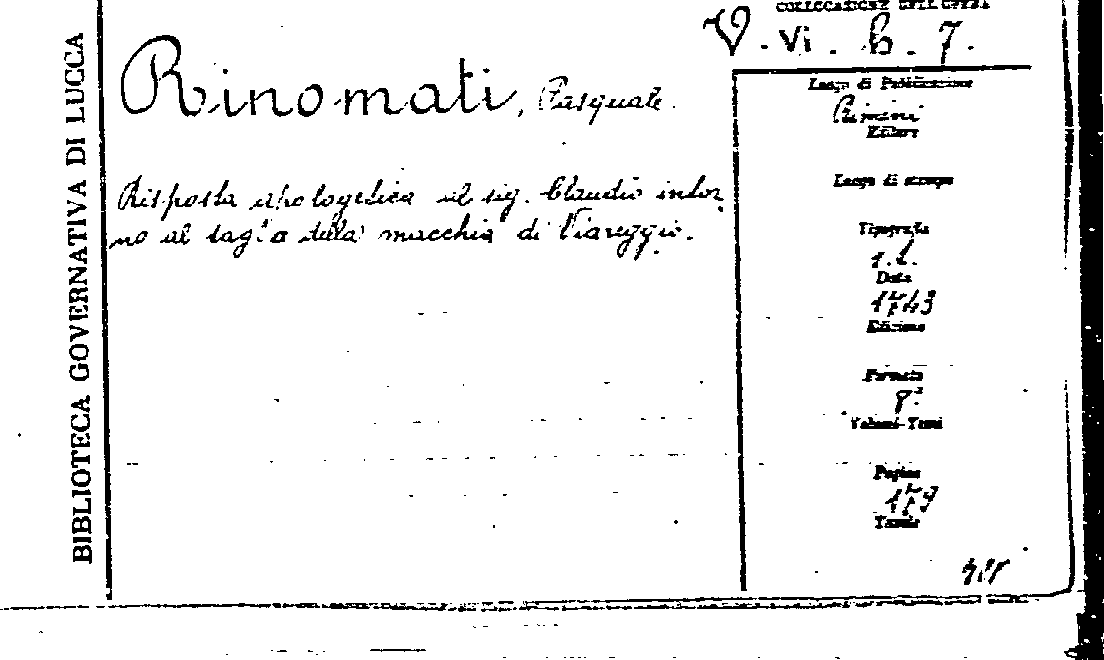 COLLOCAZIONE DELL'OPERA
V. Vi. b. 7.
BIBLIOTECA GOVERNATIVA DI LUCCA
Rinomati, Pasquale.
Risposta apologetica al sig. Claudio intor
no al taglio della macchia di Viareggio.
Luogo di Pubblicazione
Rimini
Editore
Luogo di stampa
Tipografia
Data
1743
Edizione
Formato
8º
Volumi-Tomi
Pagine
179
Tavole